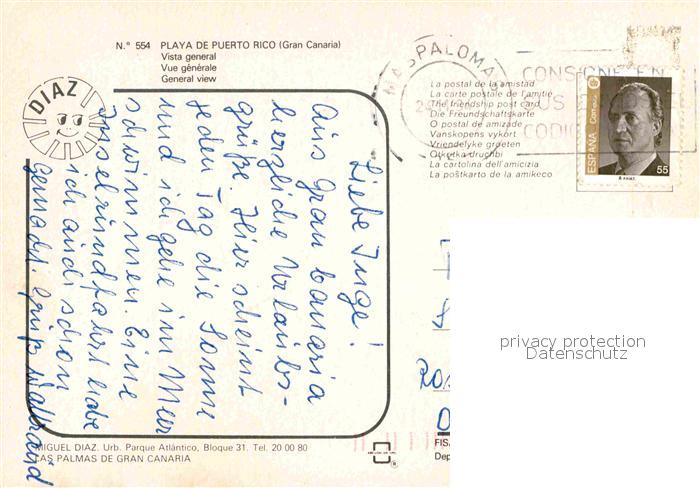 N.º 554 PLAYA DE PUERTO RICO (Gran Canaria)
Vista general
Vue générale
General view
DIAZ
MASPALOMA
CONSIGNE EN
SUS
CODIG
La postal de la amistad
La carte postale de l'amitie
The friendship post card
Die Freundschaftskarte
O postal de amizade
Vanskopens vykort
Vriendelyke groeten
Otkritka druchbi
La cartolina dell'amicizia
La poŝtkarto de la amikeco
ESPAÑA
Correos
55
Liebe Inge!
Aus Gran Canaria
herzliche Urlaubs-
grüße. Hier scheint
jeden Tag die Sonne
und ich gehe im Meer
schwimmen. Eine
Inselrundfahrt habe
ich auch schon
gemacht. Gruß Waltraud
privacy protection
Datenschutz
MIGUEL DIAZ. Urb. Parque Atlántico, Bloque 31. Tel. 20 00 80
LAS PALMAS DE GRAN CANARIA
FISA
Dep